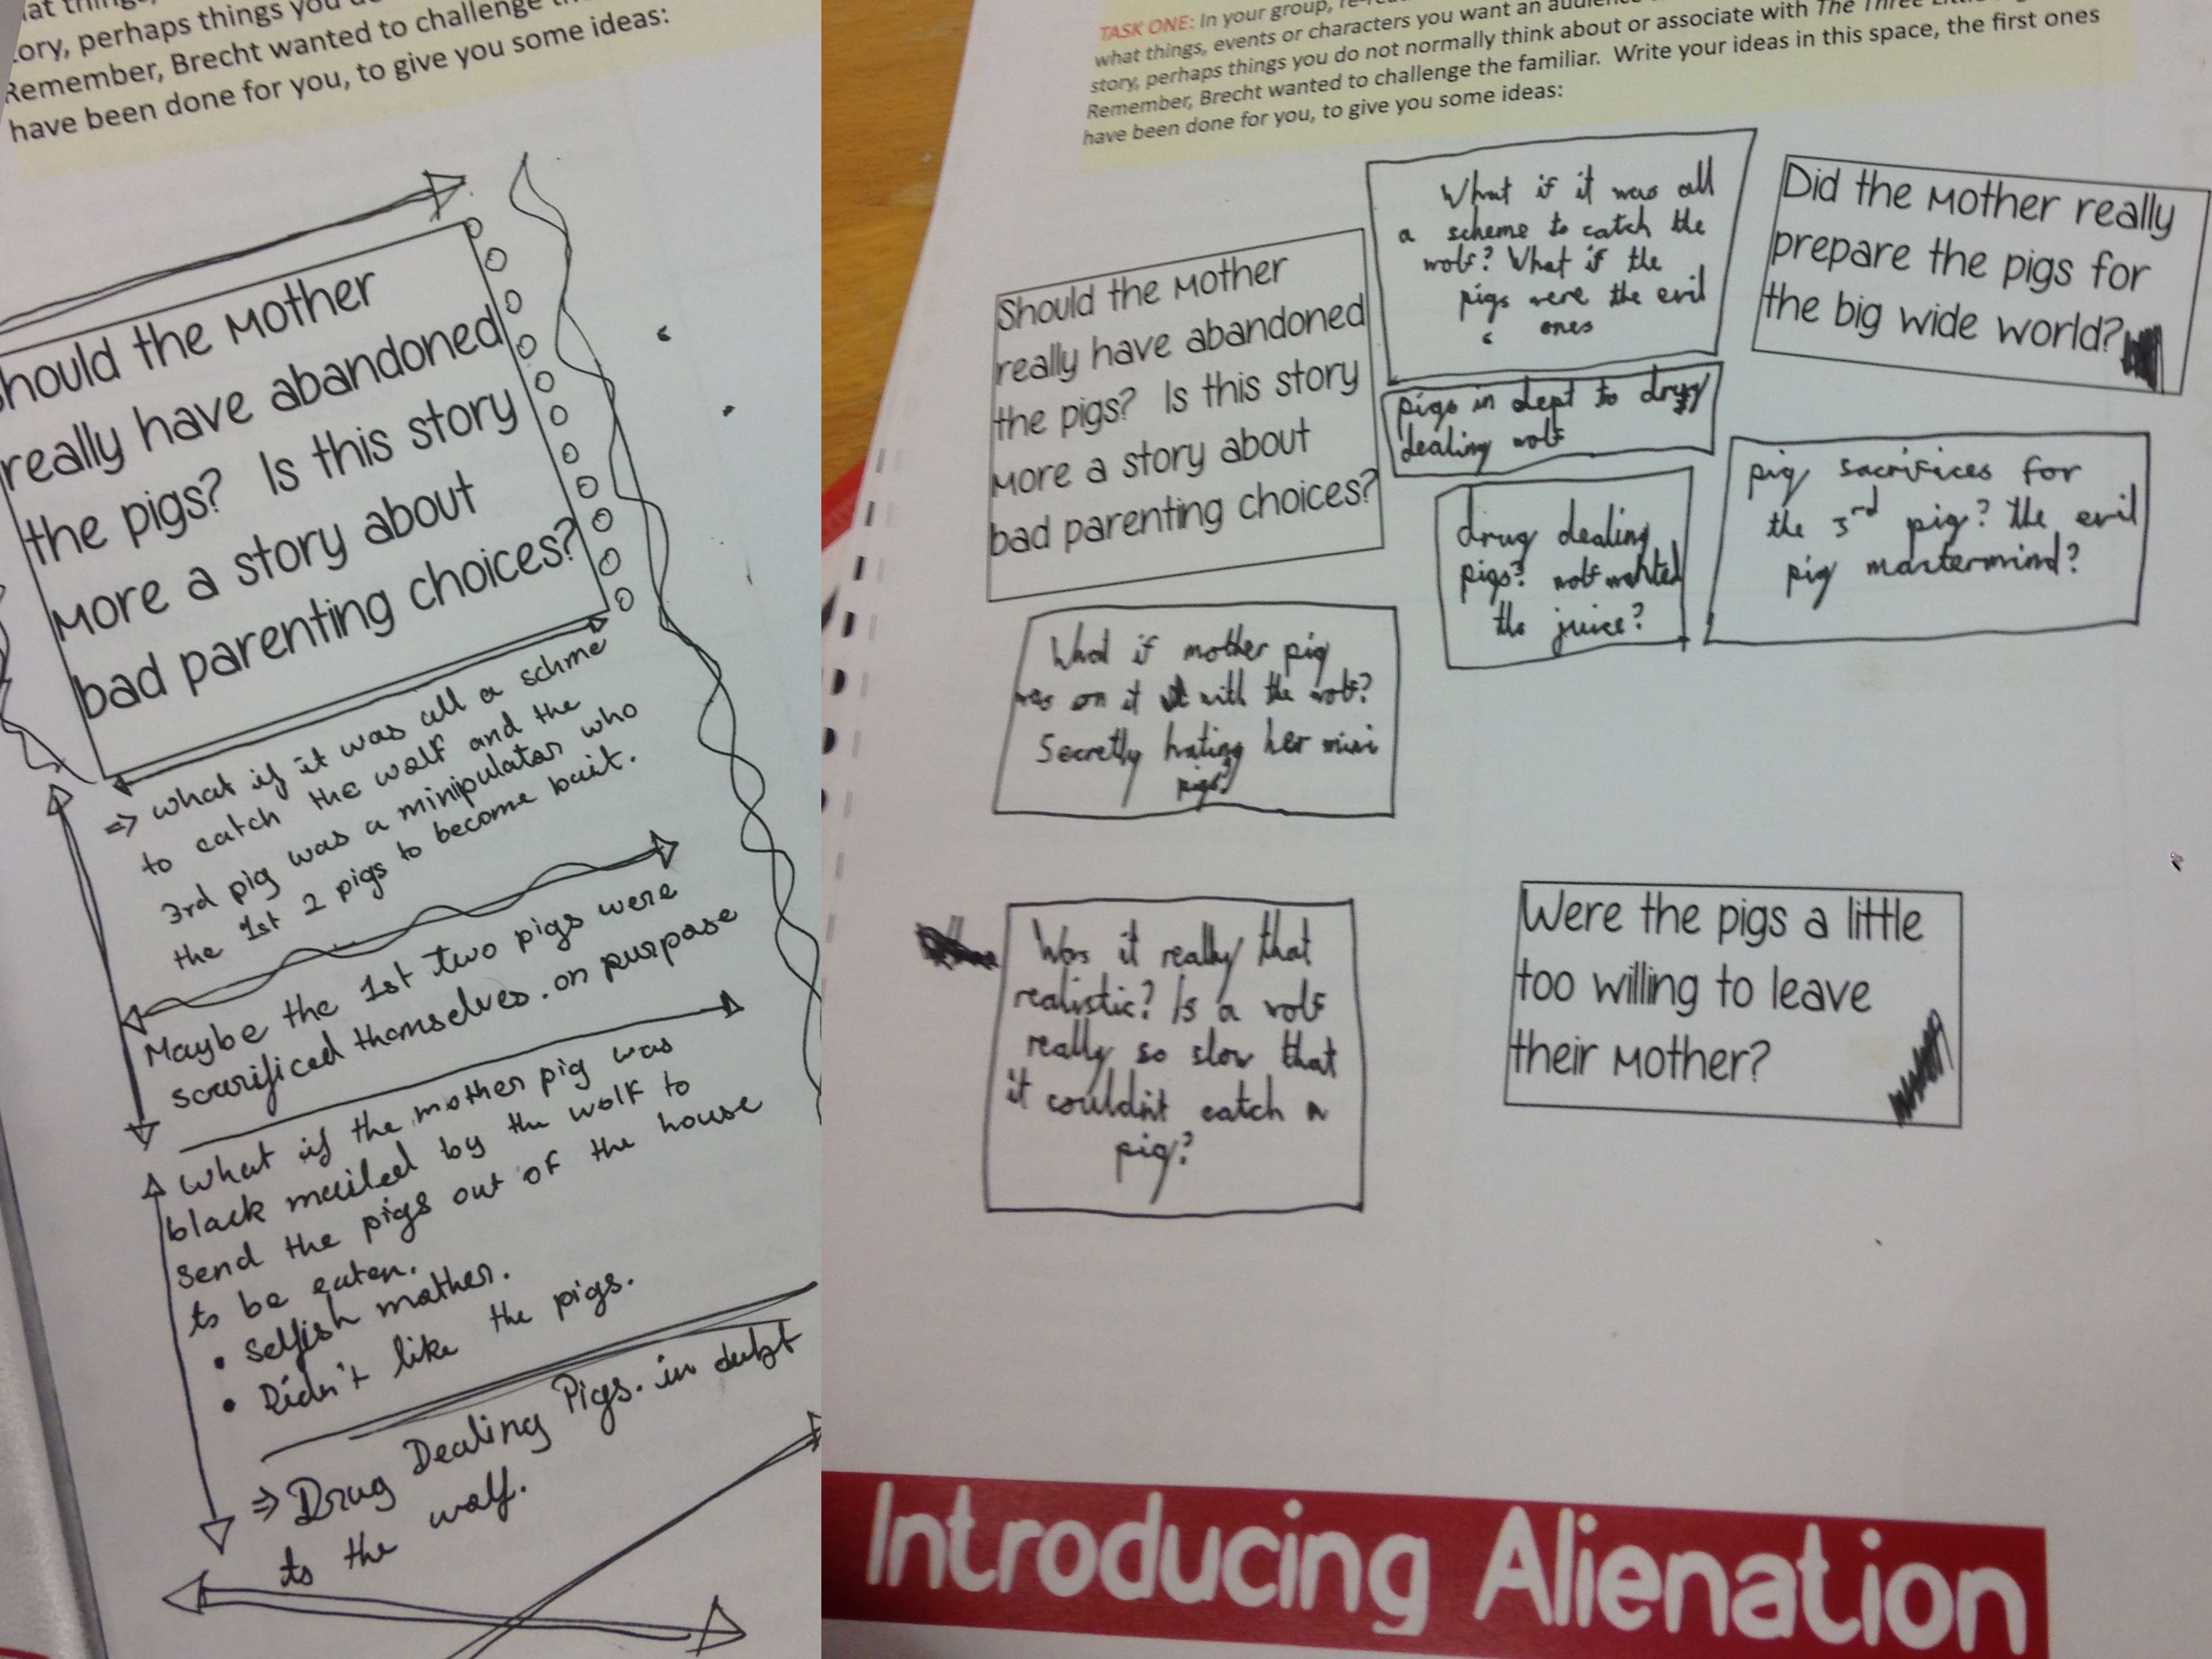 at things,
ory, perhaps things you
Remember, Brecht wanted to challenge
have been done for you, to give you some ideas:
hould the Mother
really have abandoned
the pigs? Is this story
More a story about
bad parenting choices?
⇒ what if it was all a schme
to catch the wolf and the
3rd pig was a minipulator who
the 1st 2 pigs to become bait.
Maybe the 1st two pigs were
sacrificed themselves. on purpose
what if the mother pig was
black mailed by the wolf to
send the pigs out of the house
to be eaten.
• Selfish mother.
• Didn't like the pigs.
⇒ Drug Dealing Pigs. in dubt
to the wolf.
TASK ONE: In your group,
what things, events or characters you want an
story, perhaps things you do not normally think about or associate with The Three
Remember, Brecht wanted to challenge the familiar. Write your ideas in this space, the first ones
have been done for you, to give you some ideas:
Should the Mother
really have abandoned
the pigs? Is this story
More a story about
bad parenting choices?
What if it was all
a scheme to catch the
wolf? What if the
pigs were the evil
ones
Did the Mother really
prepare the pigs for
the big wide world?
pigs in dept to drug
dealing wolf
drug dealing
pigs? wolf wanted
the juice?
pig sacrifices for
the 3rd pig? the evil
pig mastermind?
What if mother pig
was on it with the wolf?
Secretly hating her mini
pigs?
Was it really that
realistic? Is a wolf
really so slow that
it couldn't catch a
pig?
Were the pigs a little
too willing to leave
their Mother?
Introducing Alienation